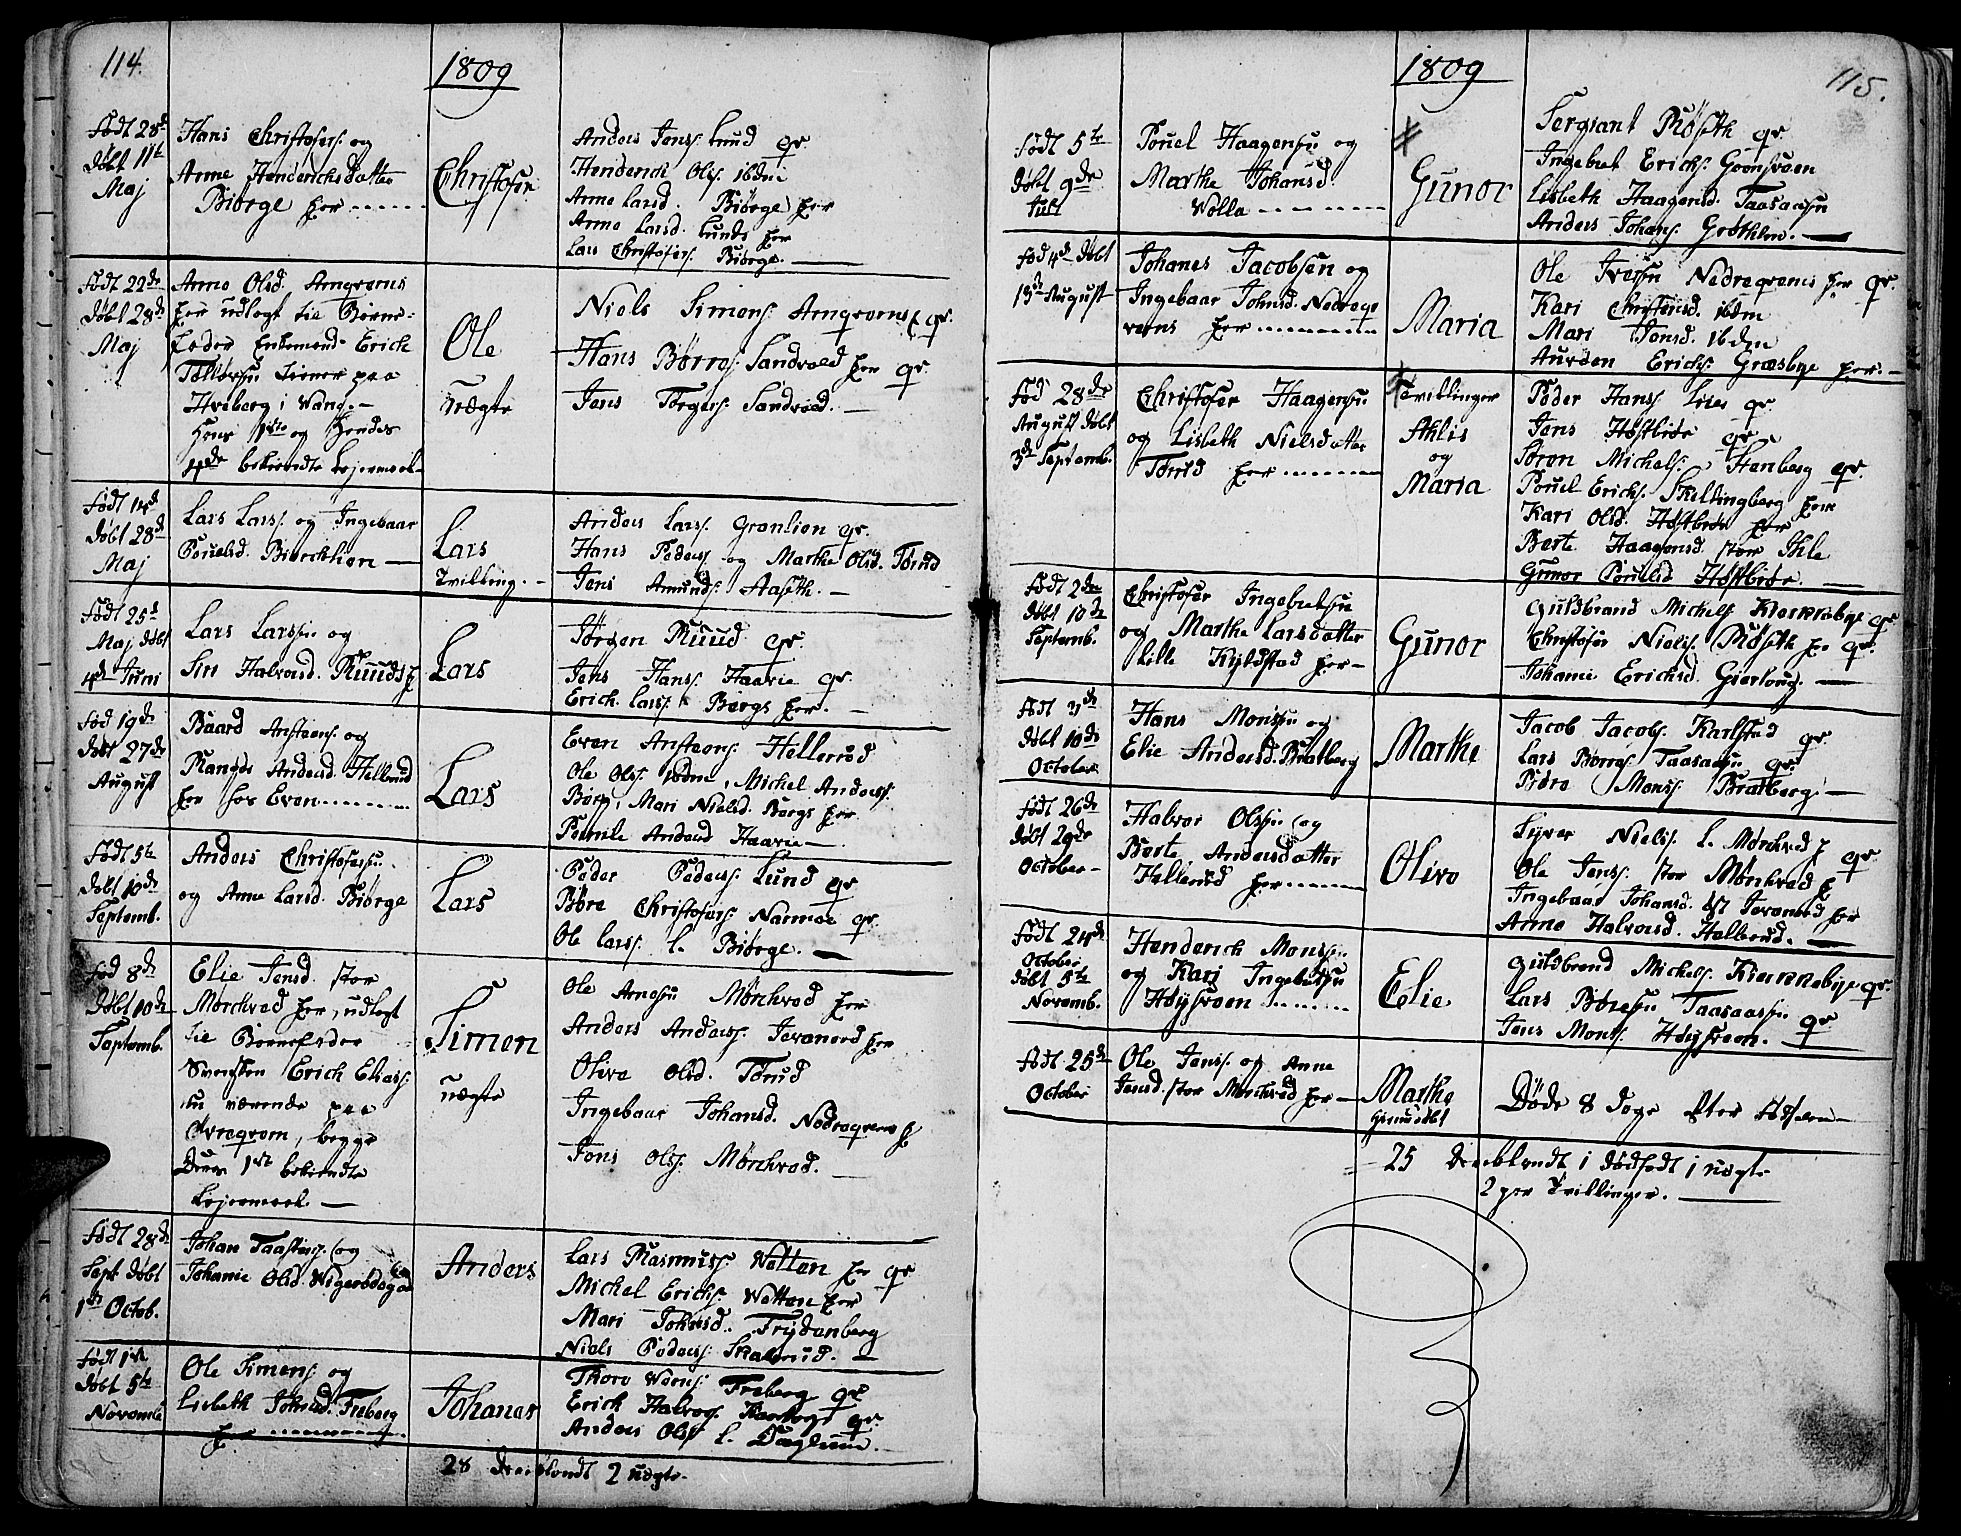 114.
1809
Født 28d
Døbt 11te
Maj
Hans Christofers: og
Anne Hendrichsdatter
Biørge
Christofer
Anders Jens: Lund qr
Henderich Ols: ibdm
Anne Larsd. Biørge
Anne Larsd. Lunds
Lars Christofers: Biørge.
Født 22de
Døbt 28de
Maj
Anne Olsd. Arnqverns
udlagt til Børne-
Fader Enkemand Erich
paa
Hveberg i Wang.
Hens 1ste og Hendes
4de bekiendte Lejermaal
Ole
uægte
Niels Simons: Arnqverns qr.
Hans Børres: Sandvold qr
Jens Torgers: Sandvold.
Født 14d
Døbt 28d
Maj
Lars Lars: og Ingebaar
Pouelsd. Biørckhon
Lars
Tvilling.
Anders Lars: Gronlien qr.
Hans Peders: og Marthe Olsd. Torud
Jens Amunds: Aaseth.
Født 25d
Maj Døbt
4de Juni
Lars Larssen og
Siri Halvorsd. Ruuds
Lars
Jørgen Ruud qr.
Jens Hans: Haarie qr.
Erich Lars: Børgs
Fød 19de
Døbt 27de
August
Baard Ansteens: og
Andersd. Hellerud
hos Even
Lars
Even Ansteens: Hellerud
Ole Ols: ibdm, Michel Anders:
Mari Nielsd. Børgs
Pernele Andersd Haarie
Født 5te
Døbt 10de
Septemb.
Anders Christofersen
og Anne Larsd. Biørge
Lars
Peder Peders: Lund qr
Børe Christofers: Narmoe qr.
Ole Lars: l. Biørge.
Fød 8de
Døbt 10de
Septemb.
Elie Jensd. stor
Mørchved, udlagt
til Børnefader
Svensken Erich Elias:
nu værende paa
Øvreqvern, begge
Deres 1ste bekiendte
Lejermaal.
Simen
uægte
Ole Arnesen Mørchved
Anders Anders:
Olive Olsd. Torud
Ingebaar Johansd. Nedreqverns
Jens Ols: Mørchved.
Født 28de
Sept Døbt
1ste Octob.
Johan og
Johanne Olsd.
Anders
Lars Rasmus: Watten qr
Michel Erichs: Watten
Mari Johnsd. Frydenberg
Niels Peders: Skalerud.
Født 1ste
Døbt 5te
Novembr
Ole Simens: og
Lisbeth Johnsd. Freberg
Johanes
Thore Freberg qr
Erich Halvors: qr.
Anders Ols: l.
28 deriblandt 2 uægte
1809
115.
Født 5te
Døbt 9de
Juli
Pouel Haagensen og
Marthe Johansd.
Wolla
Gunor
Sergiant Røseth qr
Ingebret Erichs: Grønsveen
Lisbeth Haagensd. Taasaasen
Anders Johans: Grøthlen.
Fød 4de Døbt
13de August
Johanes Jacobsen og
Ingebaar Johnsd. Nedreqv
verns
Maria
Ole Iversen Nedreqverns qr.
Kari Christensd. ibdm
Mari Jonsd. ibdm
Aurden Erichs: Græsbye
Fød 28de
August Døbt
3de Septemb.
Christofer Haagensen
og Lisbeth Nielsdatter
Torud
Tvillinger
Ahlis
og
Maria
Peder Hans: Lier qr.
Jens Høstbiør qr.
Søren Michels: Stenberg qr.
Pouel Erichs: Skillingberg
Kari Olsd. Høstbiør
Berte Haagensd. stor Ihle
Gunor Pouelsd Høstbiør.
Født 2den
Døbt 10de
Septemb.
Christofer Ingebretsen
og Marthe Larsdatter
Lille Kyldstad
Gunor
Guldbrand Michels: Kiennebye qr
Christofer Niels: Røseth qr.
Johanne Erichsd. Gierlaug.
Født
Døbt 10de
October
Hans Monsen og
Elie Andersd. Bratberg
Marthe
Jacob Jacobs: Karlstad qr.
Lars Børres: Taasaasen qr.
Pedro Mons: Bratberg.
Født 26de
Døbt 29de
October
Halvor Olssen og
Berte Andersdatter
Hellerud
Olive
Syver Niels: l. Mørchved qr
Ole Jens: stor Mørchved
Ingebaar Johansd.
Anne Halvorsd. Hallerud.
Født 24de
October
Døbt 5te
Novemb.
Henderich Monssen
og Kari Ingebretsen
Høysveen
Elie
Guldbrand Michels: Kiennebye qr
Lars Børesen Taasaassen
Jens Monts: Høysveen. qr
Født 25de
October
Ole Jens: og Anne
Jensd. stor Mørchved
Marthe
Døde 8 Dage efter Fødselen
25 deriblandt 1 dødfødt 1 uægte
2 par Tvillinger.